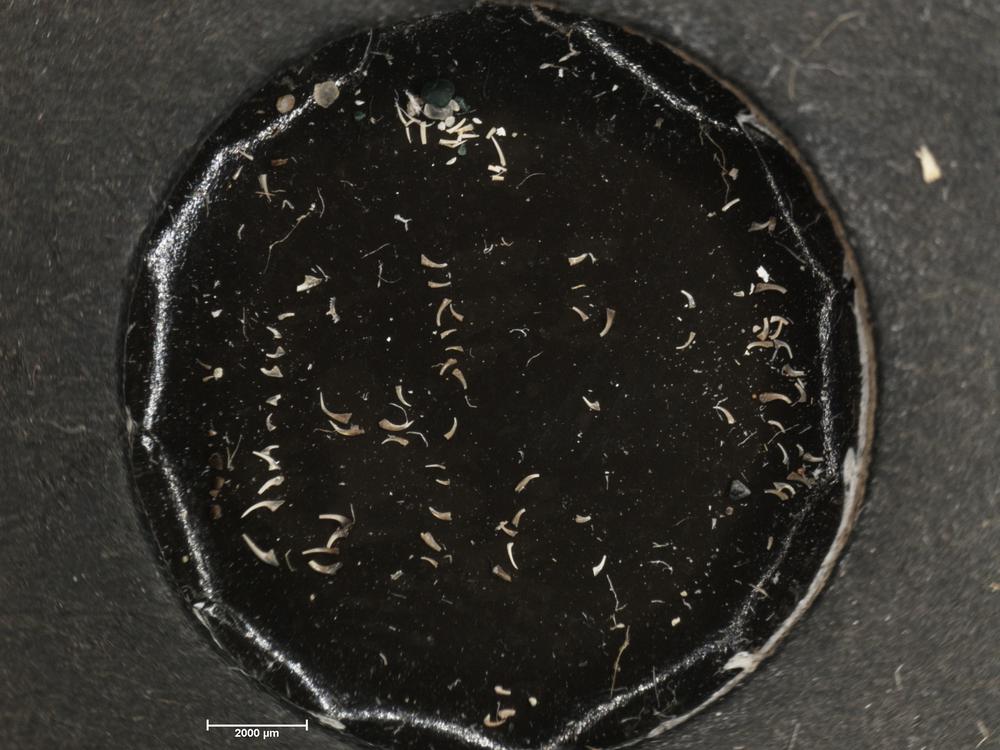 2000 µm